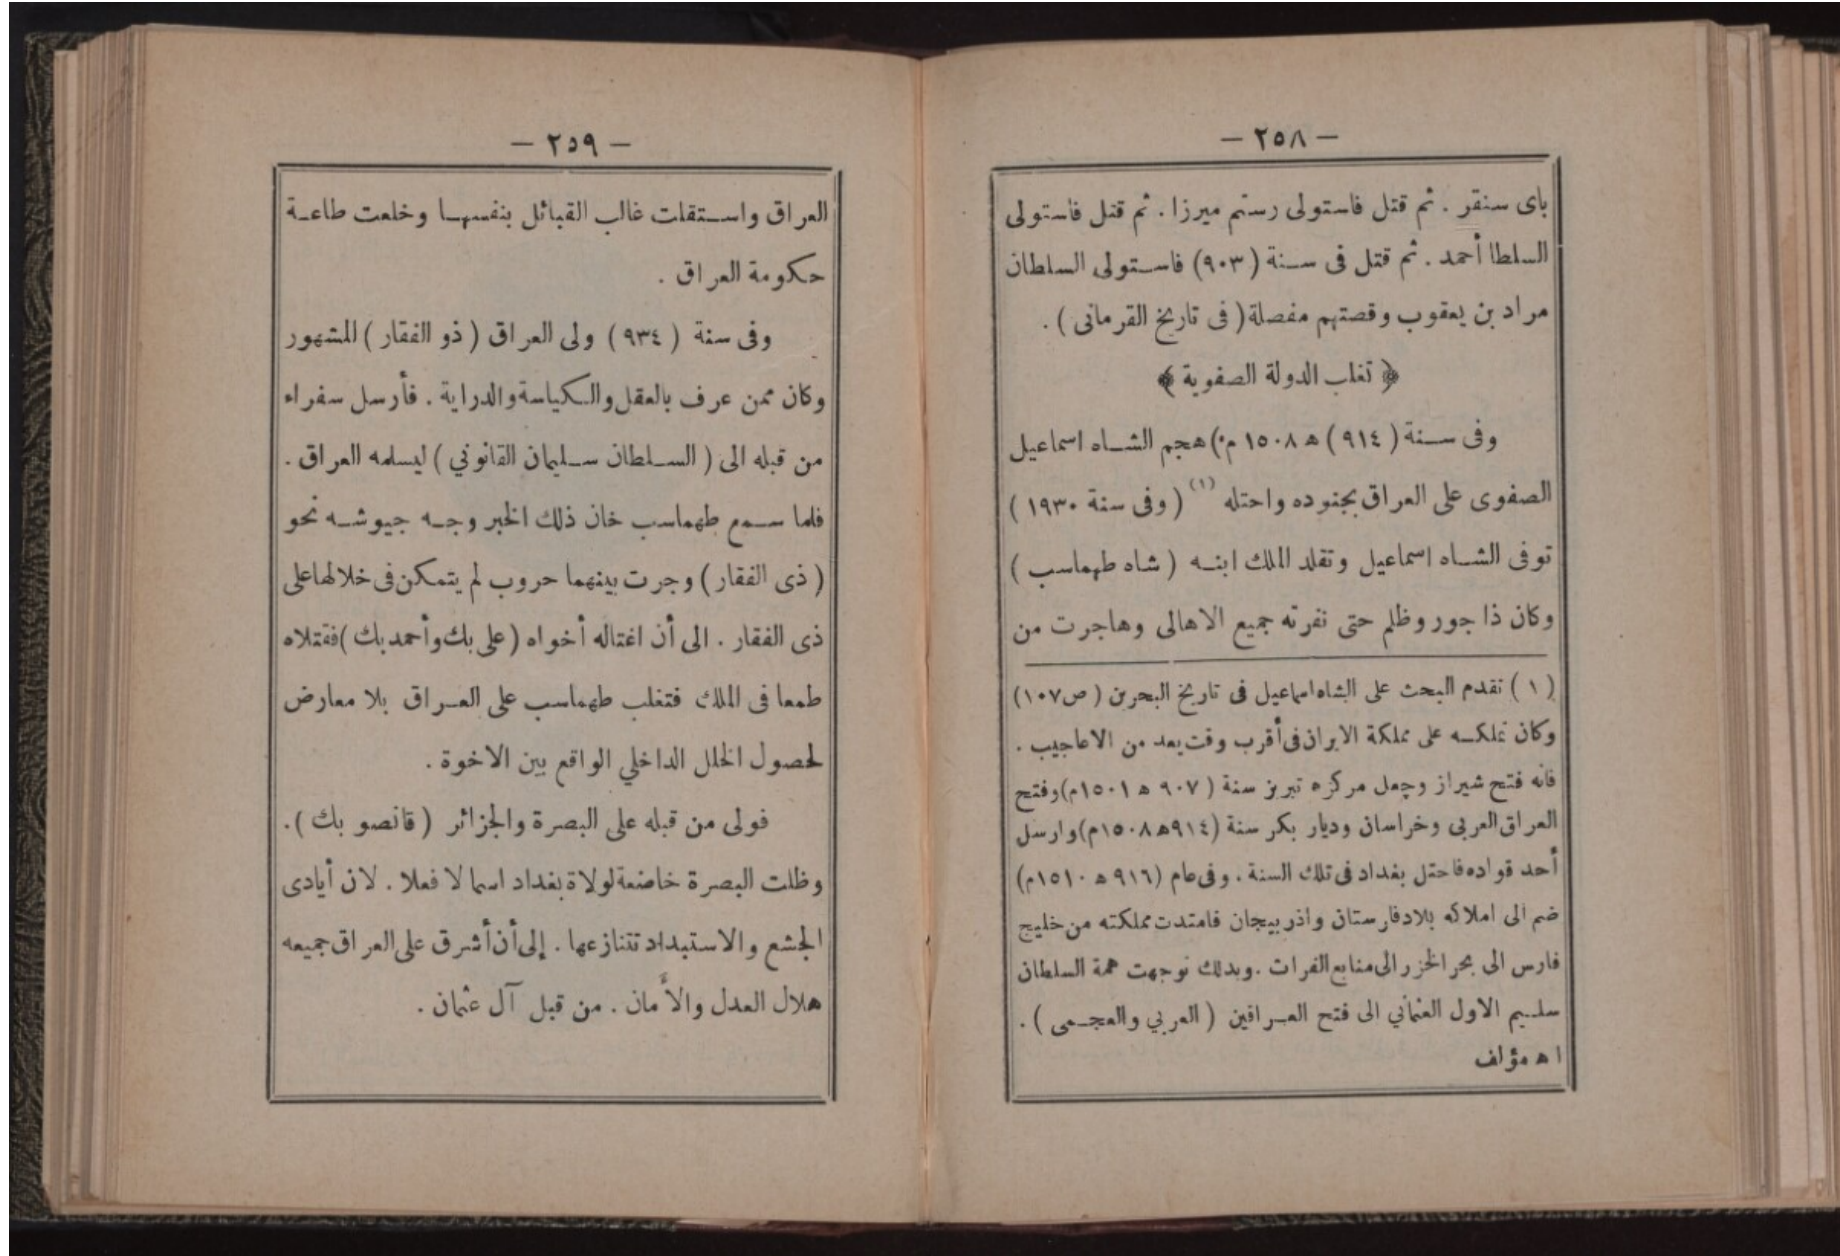 — ٢٥٨ —
باى سنقر . ثم قتل فاستولى رستم ميرزا . ثم قتل فاستولى
السلطا أحمد . ثم قتل فى سنة (٩٠٣) فاستولى السلطان
مراد بن يعقوب وقصتهم مفصلة (فى تاريخ القرمانى) .
﴿ تغلب الدولة الصفوية ﴾
وفى سنة (٩١٤) ه ١٥٠٨ م) هجم الشاه اسماعيل
الصفوى على العراق بجنوده واحتله (١) (وفى سنة ١٩٣٠)
توفى الشاه اسماعيل وتقلد الملك ابنه (شاه طهماسب)
وكان ذا جور وظلم حتى نفرته جميع الاهالى وهاجرت من
(١) تقدم البحث على الشاه اسماعيل فى تاريخ البحرين (ص١٠٧)
وكان تملكه على مملكة الايران فى أقرب وقت يعد من الاعاجيب .
فانه فتح شيراز وجعل مركزه تبريز سنة (٩٠٧ ه ١٥٠١م) وفتح
العراق العربى وخراسان وديار بكر سنة (٩١٤ه ١٥٠٨م) وارسل
أحد قواده فاحتل بغداد فى تلك السنة . وفى عام (٩١٦ ه ١٥١٠م)
ضم الى املاكه بلاد فارستان واذربيجان فامتدت مملكته من خليج
فارس الى بحر الخزر الى منابع الفرات . وبذلك توجهت همة السلطان
سليم الاول العثماني الى فتح العراقين (العربي والعجمى) .
ا ه مؤلف
— ٢٥٩ —
العراق واستقلت غالب القبائل بنفسها وخلعت طاعة
حكومة العراق .
وفى سنة (٩٣٤) ولى العراق (ذو الفقار) المشهور
وكان ممن عرف بالعقل والكياسة والدراية . فأرسل سفراء
من قبله الى (السلطان سليمان القانوني) ليسلمه العراق .
فلما سمع طهماسب خان ذلك الخبر وجه جيوشه نحو
(ذى الفقار) وجرت بينهما حروب لم يتمكن فى خلالها على
ذى الفقار . الى أن اغتاله أخواه (على بك وأحمد بك) فقتلاه
طمعا فى الملك فتغلب طهماسب على العراق بلا معارض
لحصول الخلل الداخلي الواقع بين الاخوة .
فولى من قبله على البصرة والجزائر (قانصو بك) .
وظلت البصرة خاضعة لولاة بغداد اسما لا فعلا . لان أيادى
الجشع والاستبداد تتنازعها . إلى أن أشرق على العراق جميعه
هلال العدل والأمان . من قبل آل عثمان .